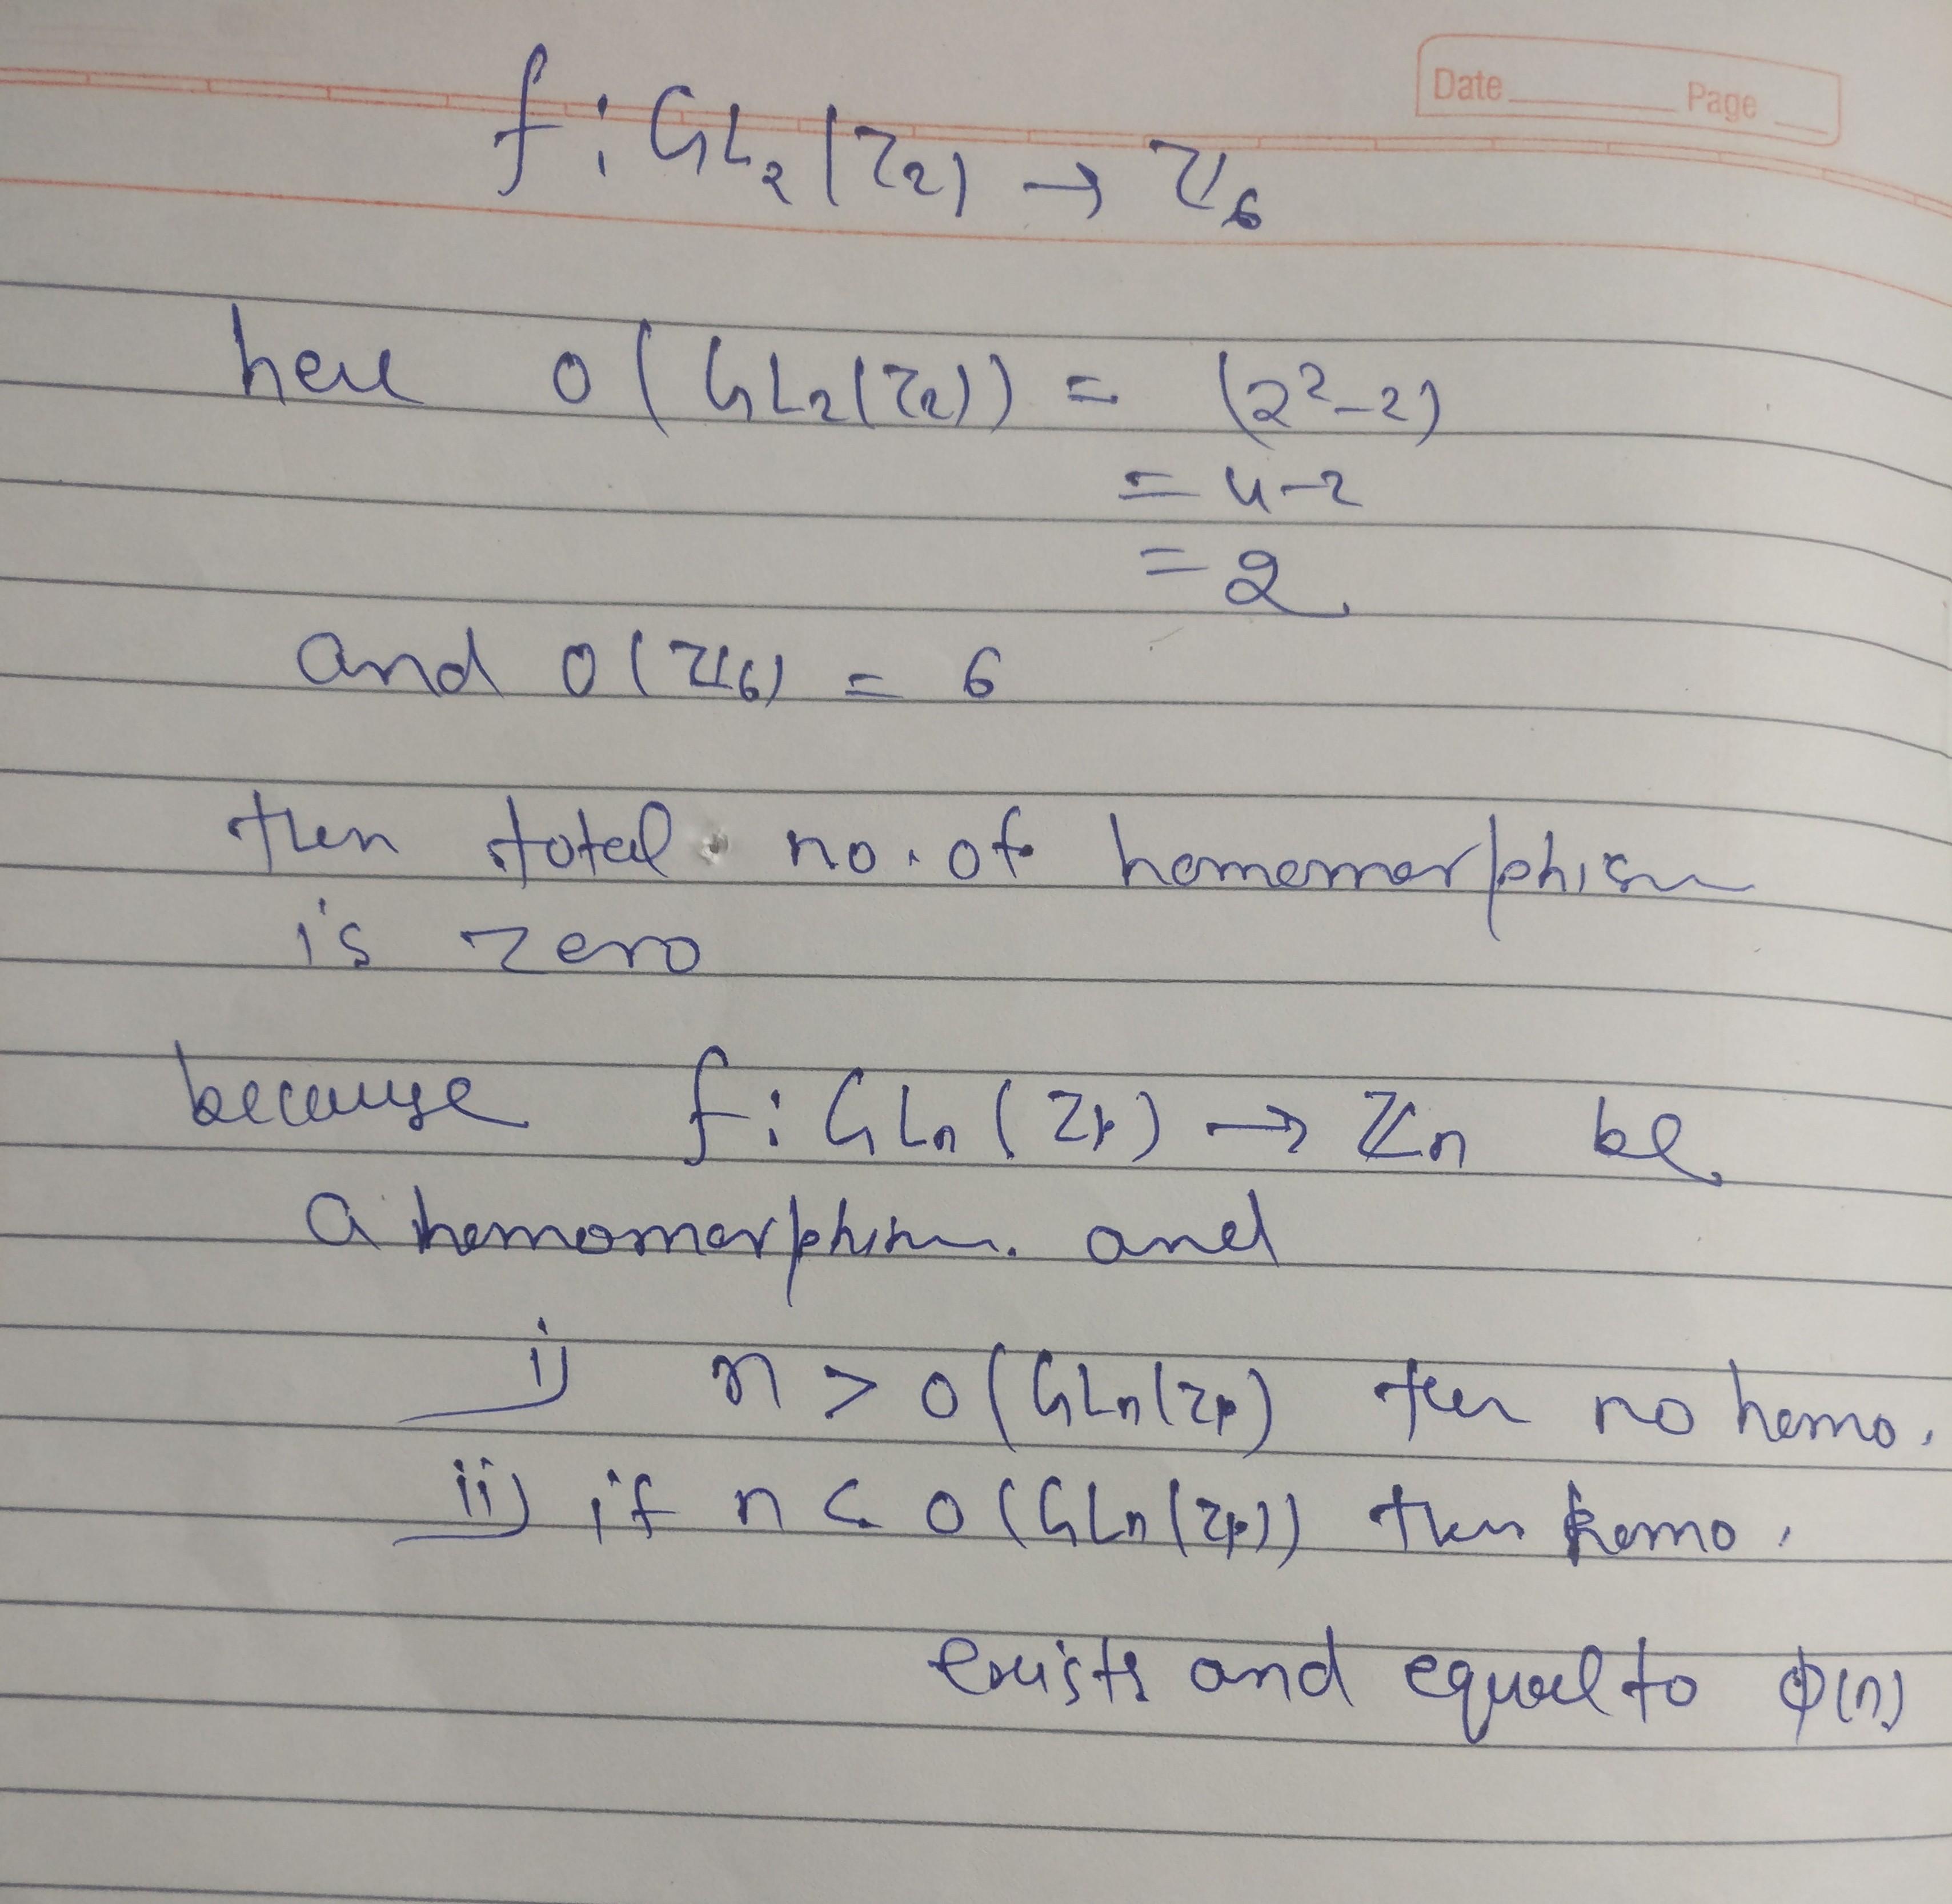 Date Page
f : GL₂(Z₂) → Z₆
here o(GL₂(Z₂)) = (2²-2)
= 4-2
= 2
and o(Z₆) = 6
then total no. of homomorphism
is zero
because f : GLn(Zp) → Zn be
a homomorphism. and
i) n > o(GLn(Zp) then no homo.
ii) if n < o(GLn(Zp)) then homo.
exists and equal to φ(n)